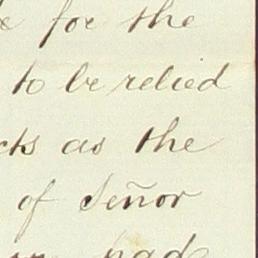 for the
to be relied
as the
of Señor